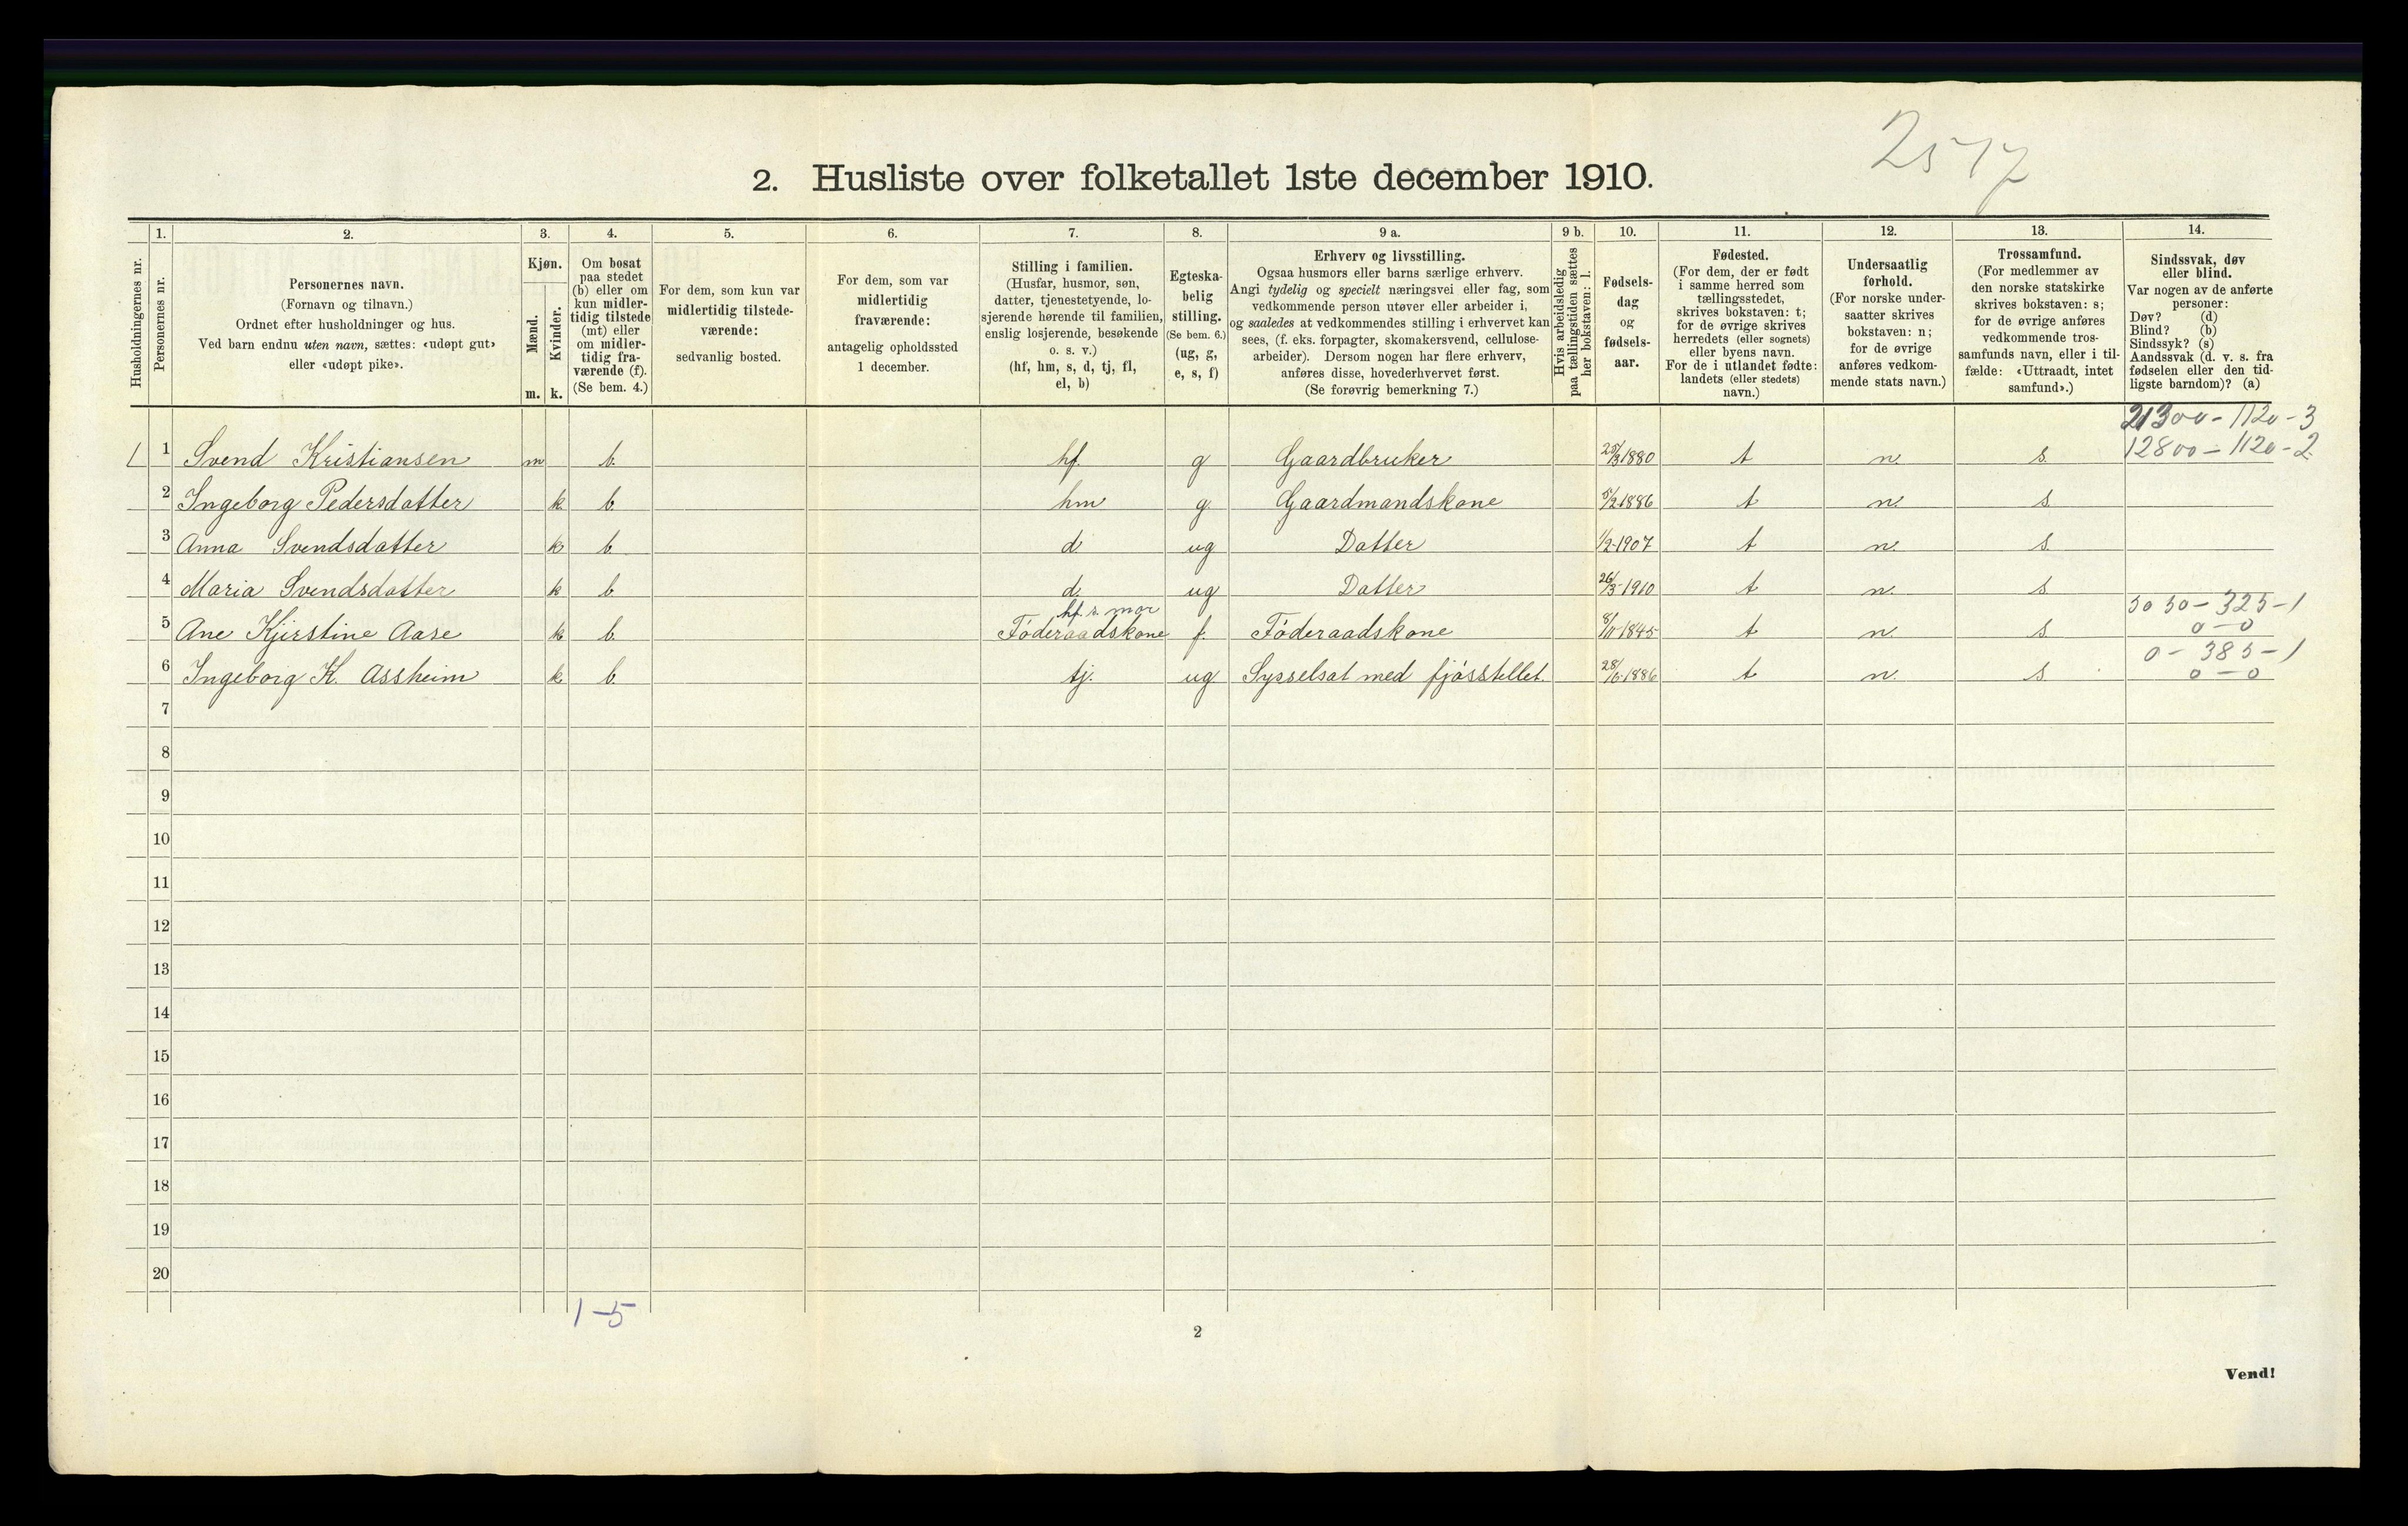 2517
2. Husliste over folketallet 1ste december 1910.
Husholdningernes nr.
1.
Personernes nr.
2.
Personernes navn.
(Fornavn og tilnavn.)
Ordnet efter husholdninger og hus.
Ved barn endnu uten navn, sættes: «udøpt gut»
eller «udøpt pike».
3.
Kjøn.
Mænd.
m.
Kvinder.
k.
4.
Om bosat
paa stedet
(b) eller om
kun midler-
tidig tilstede
(mt) eller
om midler-
tidig fra-
værende (f).
(Se bem. 4.)
5.
For dem, som kun var
midlertidig tilstede-
værende:
sedvanlig bosted.
6.
For dem, som var
midlertidig
fraværende:
antagelig opholdssted
1 december.
7.
Stilling i familien.
(Husfar, husmor, søn,
datter, tjenestetyende, lo-
sjerende hørende til familien,
enslig losjerende, besøkende
o. s. v.)
(hf, hm, s, d, tj, fl,
el, b)
8.
Egteska-
belig
stilling.
(Se bem. 6.)
(ug, g,
e, s, f)
9 a.
Erhverv og livsstilling.
Ogsaa husmors eller barns særlige erhverv.
Angi tydelig og specielt næringsvei eller fag, som
vedkommende person utøver eller arbeider i,
og saaledes at vedkommendes stilling i erhvervet kan
sees, (f. eks. forpagter, skomakersvend, cellulose-
arbeider). Dersom nogen har flere erhverv,
anføres disse, hovederhvervet først.
(Se forøvrig bemerkning 7.)
9 b.
Hvis arbeidsledig
paa tællingstiden sættes
her bokstaven: l.
10.
Fødsels-
dag
og
fødsels-
aar.
11.
Fødested.
(For dem, der er født
i samme herred som
tællingsstedet,
skrives bokstaven: t;
for de øvrige skrives
herredets (eller sognets)
eller byens navn.
For de i utlandet fødte:
landets (eller stedets)
navn.)
12.
Undersaatlig
forhold.
(For norske under-
saatter skrives
bokstaven: n;
for de øvrige
anføres vedkom-
mende stats navn.)
13.
Trossamfund.
(For medlemmer av
den norske statskirke
skrives bokstaven: s;
for de øvrige anføres
vedkommende tros-
samfunds navn, eller i til-
fælde: «Uttraadt, intet
samfund».)
14.
Sindssvak, døv
eller blind.
Var nogen av de anførte
personer:
Døv? (d)
Blind? (b)
Sindssyk? (s)
Aandssvak (d. v. s. fra
fødselen eller den tid-
ligste barndom)? (a)
21300 - 1120 - 3
1 1 Svend Kristiansen m b. hf. g Gaardbruker 25/3 1880 t n. s. 12800 - 1120 - 2
2 Ingeborg Pedersdatter k. b. hm g. Gaardmandskone 5/2 1886 t n. s.
3 Anna Svendsdatter k b. d ug Datter 1/2-1907 t n. s.
4 Maria Svendsdatter k b. d. ug Datter 26/3-1910 t n. s
hf.s. mor 5050 - 325 - 1
5 Ane Kjirstine Aase k b. Föderaadskone f. Föderaadskone 8/11-1845 t n. s. 0 - 0
0 - 385 - 1
6 Ingeborg K. Assheim k. b. tj. ug Sysselsat med fjösstellet. 28/6-1886 t n. s. 0 - 0
7
8
9
10
11
12
13
14
15
16
17
18
19
20
1-5
2
Vend!